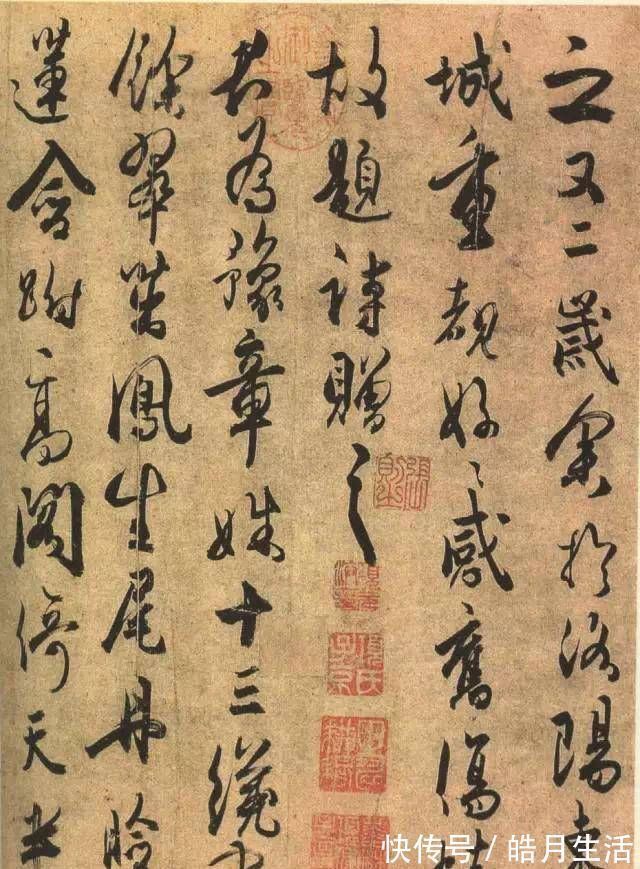 之又二歲余於洛陽東
城重覩好〻感舊傷
故題詩贈之
君為豫章姝十三纔
翠茁鳳生尾丹臉
蓮含跗高閣倚天半
快传号 / 皓月生活